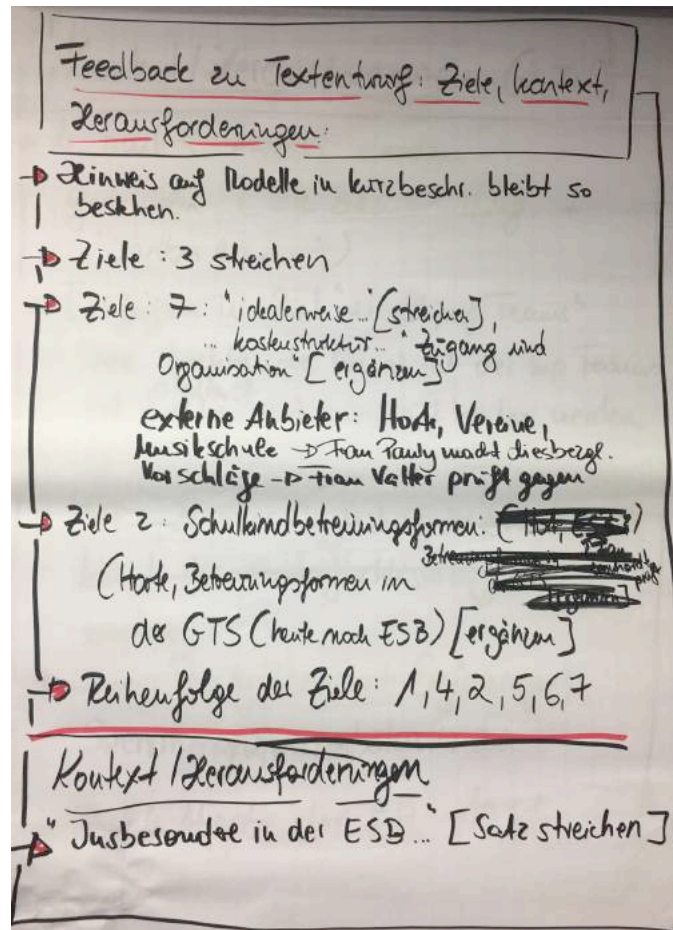 Feedback zu Textentwurf: Ziele, Kontext,
Herausforderungen:
Hinweis auf Modelle in kurzbeschr. bleibt so
bestehen.
Ziele : 3 streichen
Ziele : 7 : "idealerweise..." [streichen],
"... kostenstruktur..." Zugang und
Organisation" [ergänzen]
externe Anbieter: Horte, Vereine,
Musikschule → Frau Pauly macht diesbezgl.
Vorschläge → Frau Vatter prüft gegen
Ziele 2 : Schulkindbetreuungsformen:
(Horte, Betreuungsformen in
der GTS (heute noch ESB) [ergänzen]
Reihenfolge der Ziele : 1, 4, 2, 5, 6, 7
Kontext / Herausforderungen
"Insbesondere in der ESB..." [Satz streichen]